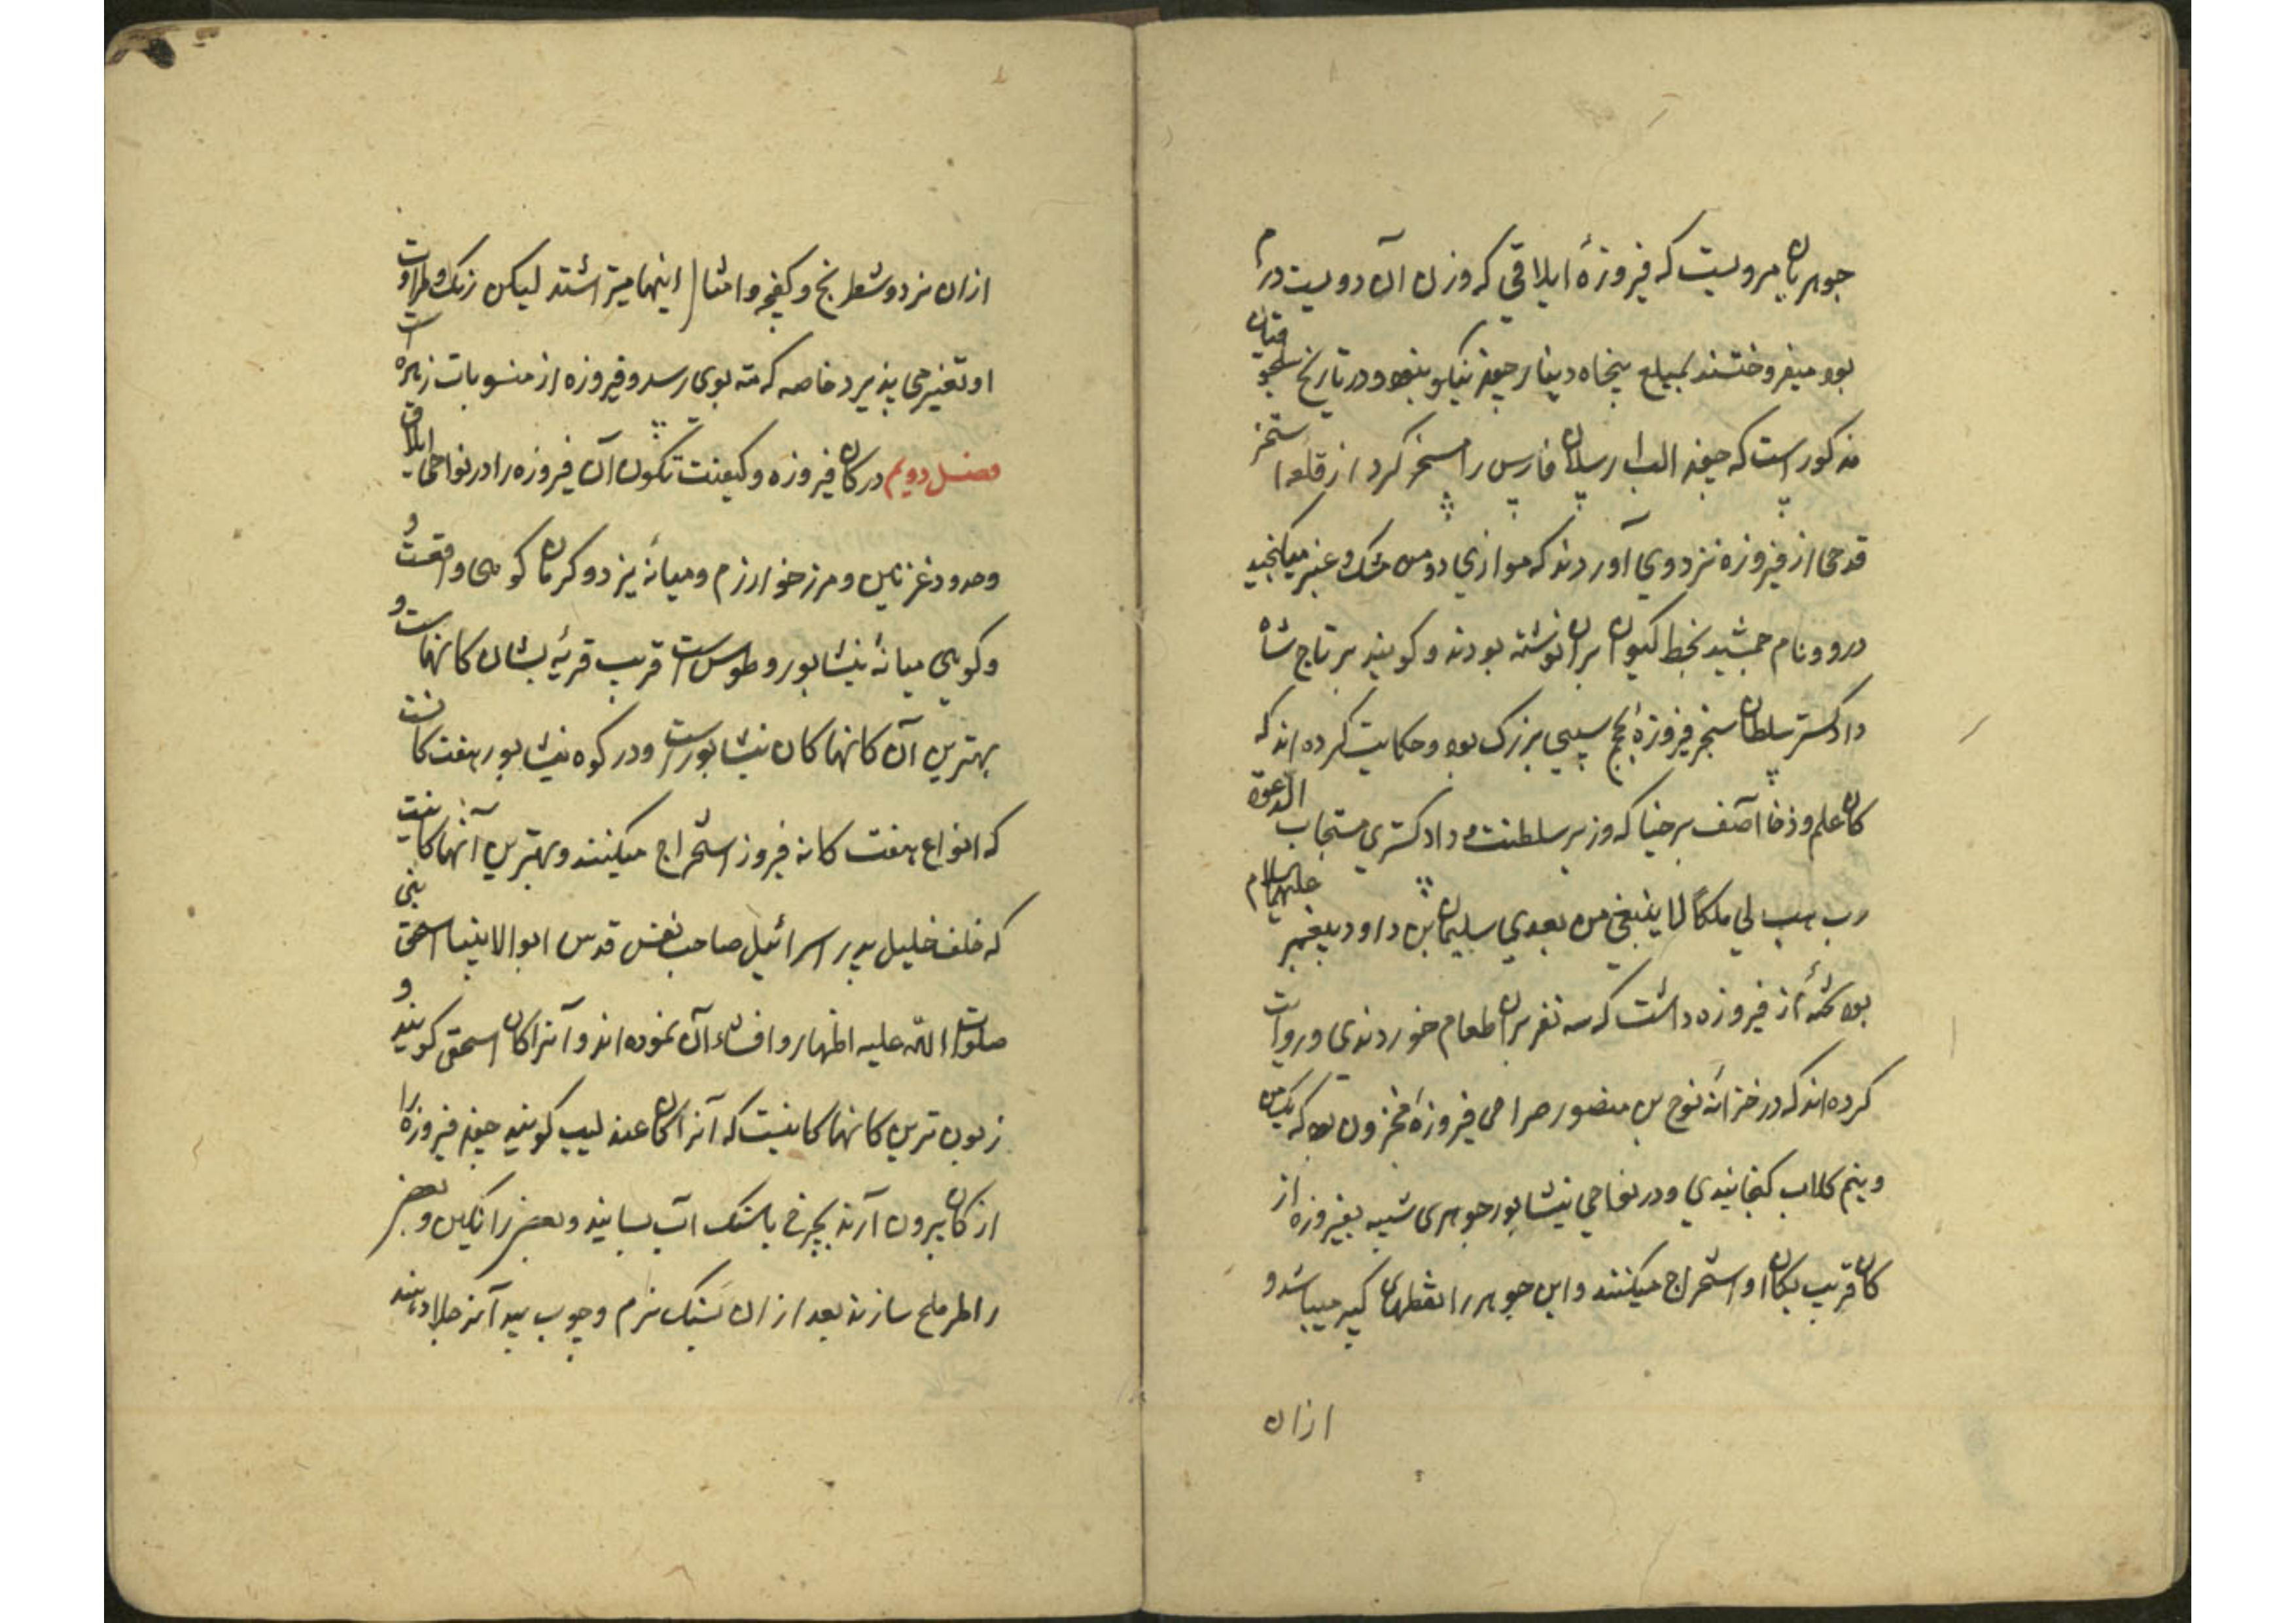 جوهریان مرویست که فیروزهٔ ایلاقی که وزن آن دویست درم
بود میفروختند بمبلغ پنجاه دینار چون نیکو بنود و در تاریخ سلجوقیان
مذکور است که چون الب ارسلان فارس را مسخر کرد از قلعه استخر
قدحی از فیروزه نزد وی آوردند که موازی دو من مشک و عنبر میکنجید
درو و نام جمشید بخط کیون بران نوشته بودند و کویند بر تاج شاه
دادکستر سلطان سنجر فیروزهٔ بحجم سیبی بزرک بود و حکایت کرده اند که
کان علم و ذخا آصف برخیا که وزیر سلطنت و دادکستری مستجاب الدعوة
رب هب لی ملکاً لا ینبغی من بعدی سلیمان بن داود پیغمبر علیهما السلام
بود از فیروزه داشت که سه نفر بران طعام خوردندی و روایت
کرده اند که در خزانه نوح بن منصور صراحی فیروزهٔ مخزون بود که یک من
و نیم کلاب کنجانیدی و در نواحی نیشابور جوهری شبیه بفیروزه از
کان قریب بکان او استخراج میکنند و این جوهر را قطعهای کبیر میباشد و
ازان
ازان نرد و شطرنج و کفچه و امثال اینها میتراشند لیکن رنک و طراوت
او تغییر می پذیرد خاصه که مته بوی رسد و فیروزه از منسوبات زهره است
فصل دویم در کان فیروزه و کیفیت تکون آن فیروزه را در نواحی ایلاق
و حدود غزنین و مرز خوارزم و میانه یزد و کرمان کوهی واقعست و
و کوهی میانهٔ نیشابور و طوس است قریب قریهٔ بشان کانهاست و
بهترین آن کانها کان نیشابور است و در کوه نیشابور هفت کانست
که انواع هفت کانه فیروز استخراج میکنند و بهترین آنها کانیست
که خلف خلیل پدر اسرائیل صاحب نفس قدس ابوالانبیا اسحق نبی
صلوات الله علیه اظهار و افشاء آن نموده اند و آنرا کان اسحقی کویند و
زبون ترین کانها کانیست که آنرا کان عندلیب کویند چون فیروزه را
از کان بیرون آرند بچرخ با سنک آب بسایند و بعضی را نکین و بعضی
را اطرملح سازند بعد ازان بسنک نرم و چوب بید آنرا جلا دهند